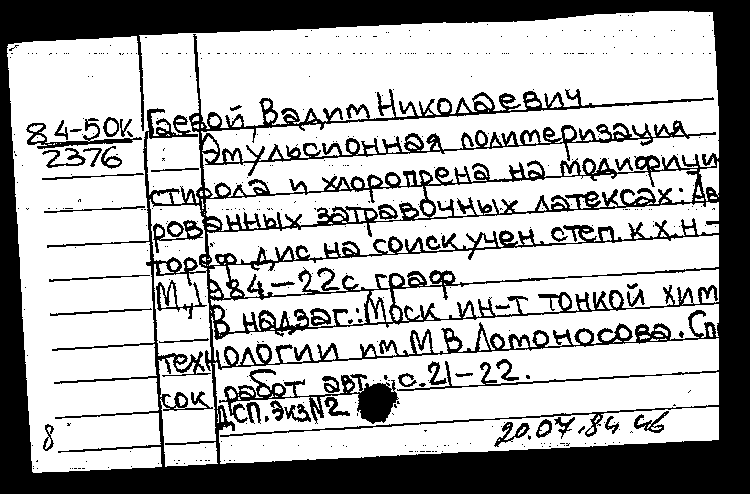 84-50К Гаевой, Вадим Николаевич.
2376 Эмульсионная полимеризация
стирола и хлоропрена на модифици-
рованных затравочных латексах: Ав-
тореф. дис. на соиск. учен. степ. к.х.н. -
М., 1984. - 22 с. граф.
В надзаг.: Моск. ин-т тонкой хим.
технологии им. М.В. Ломоносова. Спи-
сок работ авт.: с. 21-22.
ДСП. Экз N2
8 20.07.84